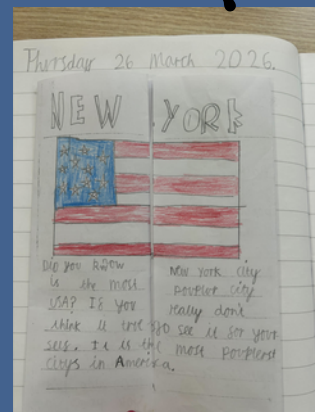 Thursday 26 March 2026.
NEW YORK
Did you know New York City
is the most poupler city
USA? If you really don't
think u see it for your
self. It is the most pouplerst
citys in America.